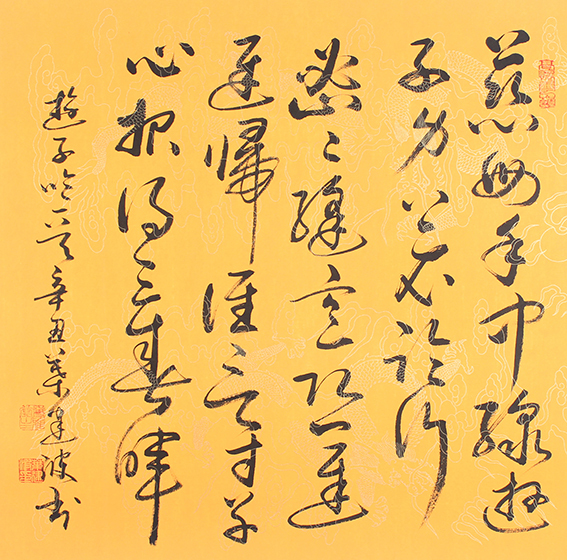 慈母手中線遊
子身上衣臨行
密々縫意恐遲
遲歸誰言寸草
心報得三春暉
遊子吟一首辛丑葉建波书